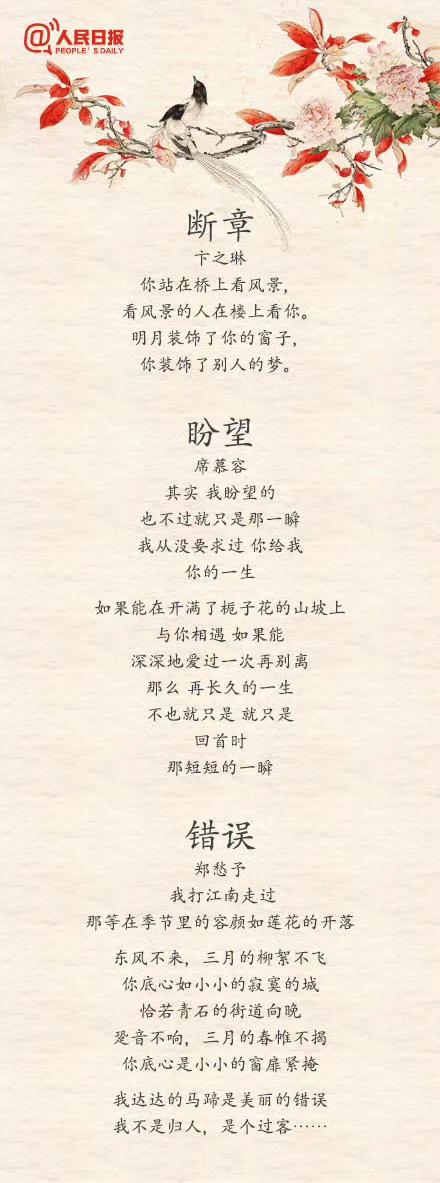 @人民日报
PEOPLE'S DAILY
断章
卞之琳
你站在桥上看风景,
看风景的人在楼上看你。
明月装饰了你的窗子,
你装饰了别人的梦。
盼望
席慕容
其实 我盼望的
也不过就只是那一瞬
我从没要求过 你给我
你的一生
如果能在开满了栀子花的山坡上
与你相遇 如果能
深深地爱过一次再别离
那么 再长久的一生
不也就只是 就只是
回首时
那短短的一瞬
错误
郑愁予
我打江南走过
那等在季节里的容颜如莲花的开落
东风不来, 三月的柳絮不飞
你底心如小小的寂寞的城
恰若青石的街道向晚
跫音不响, 三月的春帷不揭
你底心是小小的窗扉紧掩
我达达的马蹄是美丽的错误
我不是归人, 是个过客……